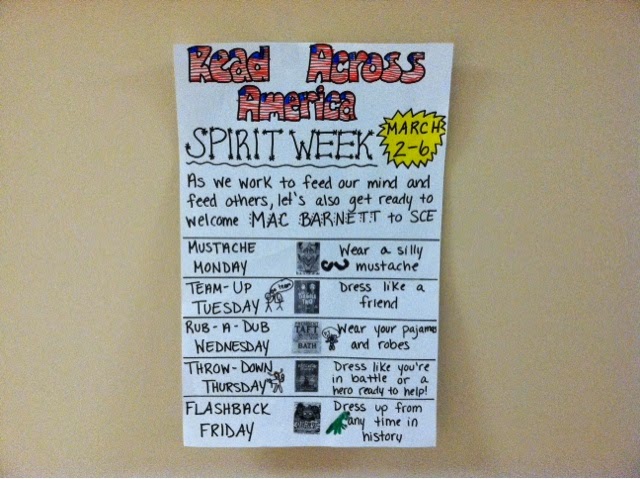 Read Across
America
SPIRIT WEEK
MARCH
2-6
As we work to feed our mind and
feed others, let's also get ready to
welcome MAC BARNETT to SCE
MUSTACHE
MONDAY
Wear a silly
mustache
TEAM-UP
TUESDAY
Dress like a
friend
RUB-A-DUB
WEDNESDAY
TAFT
BATH
Wear your pajamas
and robes
THROW-DOWN
THURSDAY
Dress like you're
in battle or a
hero ready to help!
FLASHBACK
FRIDAY
Dress up from
any time in
history